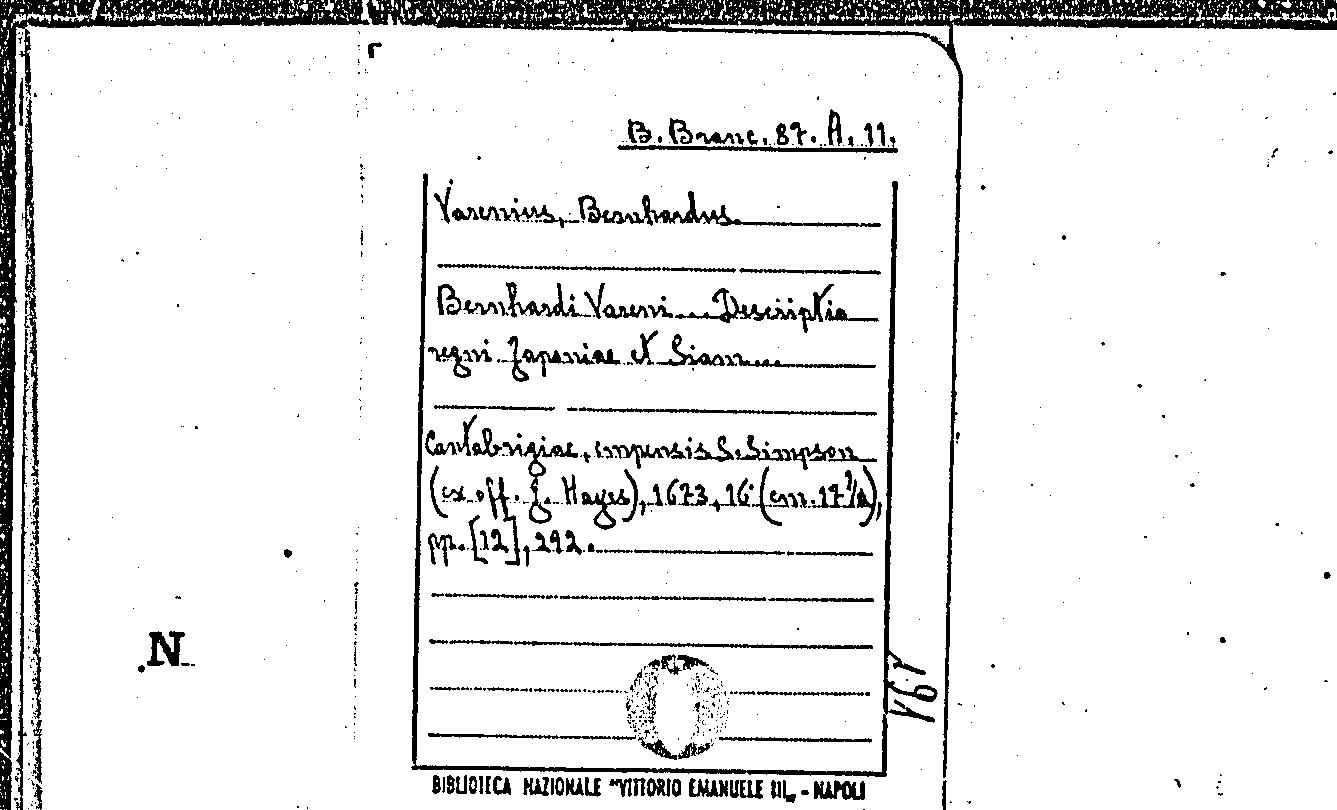 B. Branc. 87. A. 11.
Varenius, Bernhardus.
Bernhardi Vareni... Descriptio
regni Japoniae et Siam...
Cantabrigiae, impensis S. Simpson
(ex off. J. Hayes), 1673, 16° (cm. 17½),
pp. [12], 292.
N
BIBLIOTECA NAZIONALE "VITTORIO EMANUELE III„ - NAPOLI